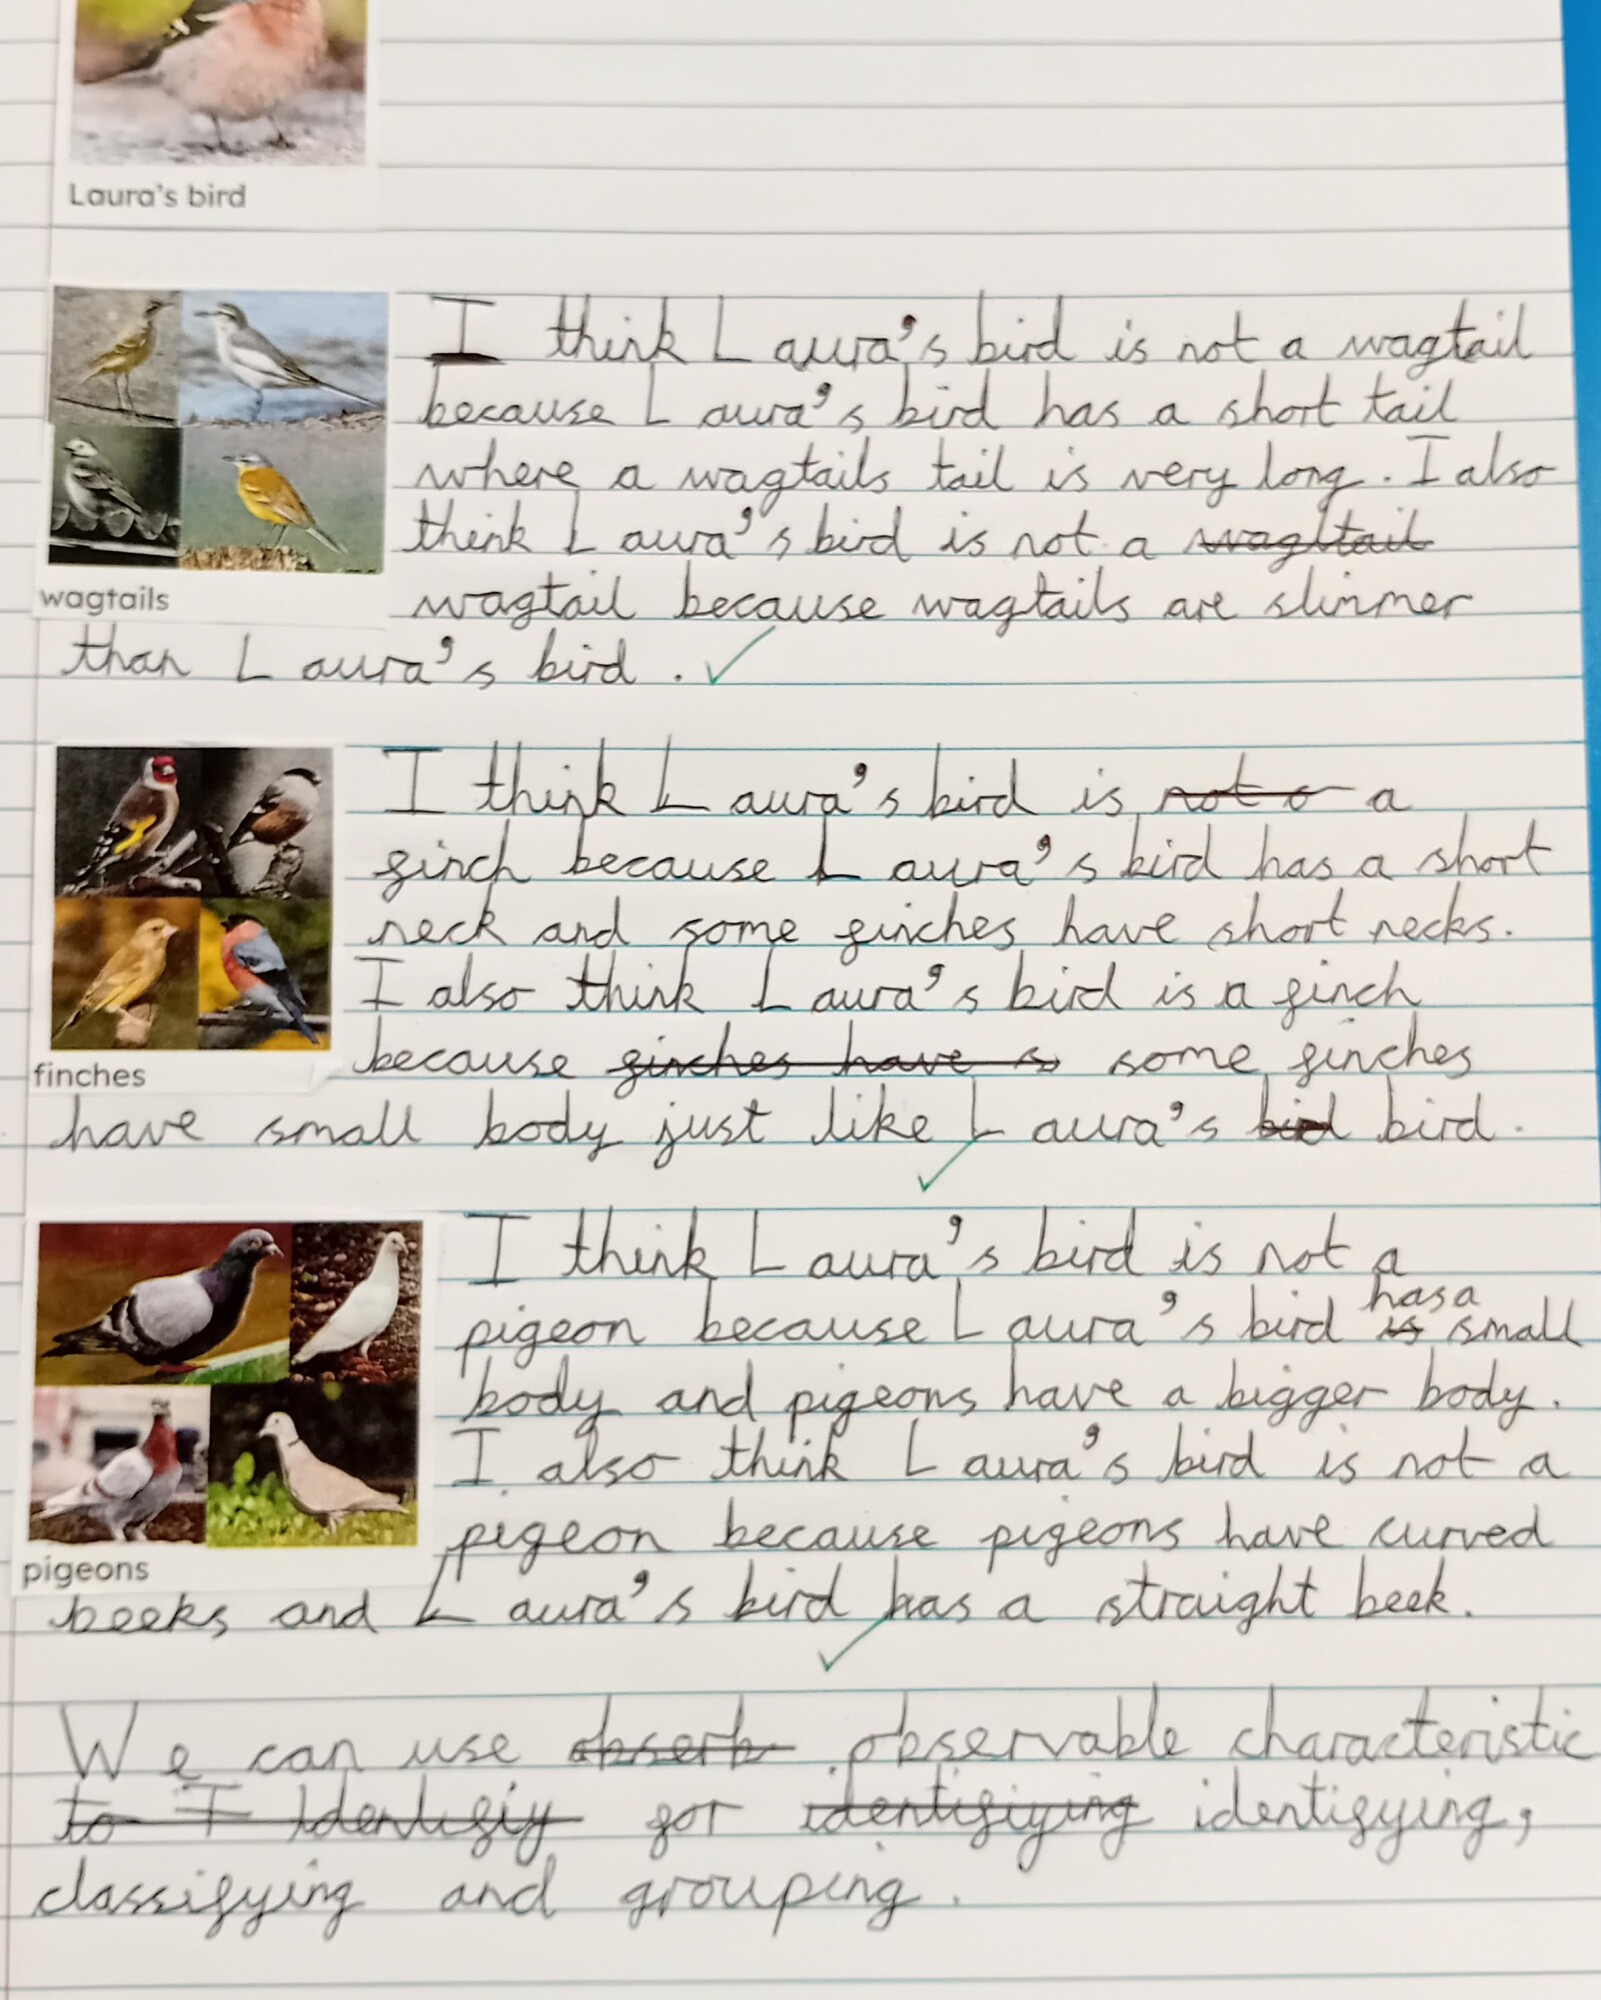 Laura's bird
I think Laura's bird is not a wagtail
because Laura's bird has a short tail
where a wagtails tail is very long. I also
think Laura's bird is not a wagltail
wagtail because wagtails are slimmer
wagtails
than Laura's bird.
I think Laura's bird is not a a
finch because Laura's bird has a short
neck and some finches have short necks.
I also think Laura's bird is a finch
because finches have s some finches
finches
have small body just like Laura's bird bird.
I think Laura's bird is not a
has a
pigeon because Laura's bird is small
body and pigeons have a bigger body.
I also think Laura's bird is not a
pigeon because pigeons have curved
pigeons
beeks and Laura's bird has a straight beek.
We can use obserb observable characteristic
to I Identifiy for identifiying identifying,
classifying and grouping.